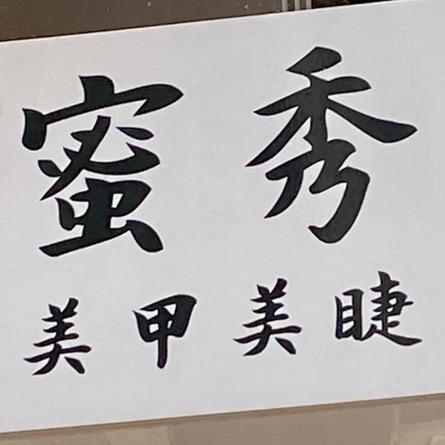 蜜秀
美甲美睫